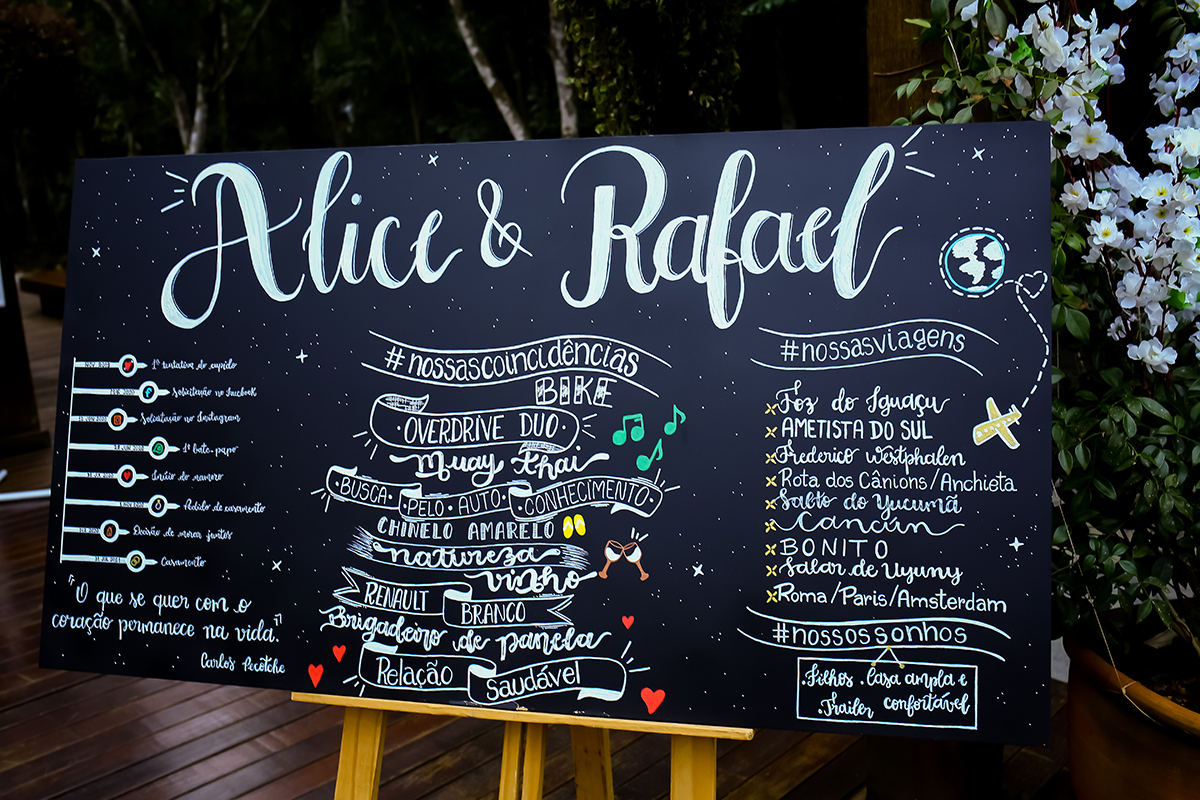 Alice & Rafael
1ª tentativa do cupido
Solicitação no Facebook
Solicitação no Instagram
1º bate-papo
Início do namoro
Pedido de casamento
Decisão de morar juntos
Casamento
"O que se quer com o
coração permanece na vida."
Carlos Pecotche
#nossascoincidências
BIKE
OVERDRIVE DUO
muay thai
BUSCA PELO AUTO CONHECIMENTO
CHINELO AMARELO
natureza
vinho
RENAULT BRANCO
Brigadeiro de panela
Relação saudável
#nossasviagens
Foz do Iguaçu
AMETISTA DO SUL
Frederico westphalen
Rota dos Cânions/Anchieta
Salto do Yucumã
Cancún
BONITO
Salar de Uyuny
Roma/Paris/Amsterdam
#nossossonhos
.Filhos .Casa ampla e
.Trailer confortável